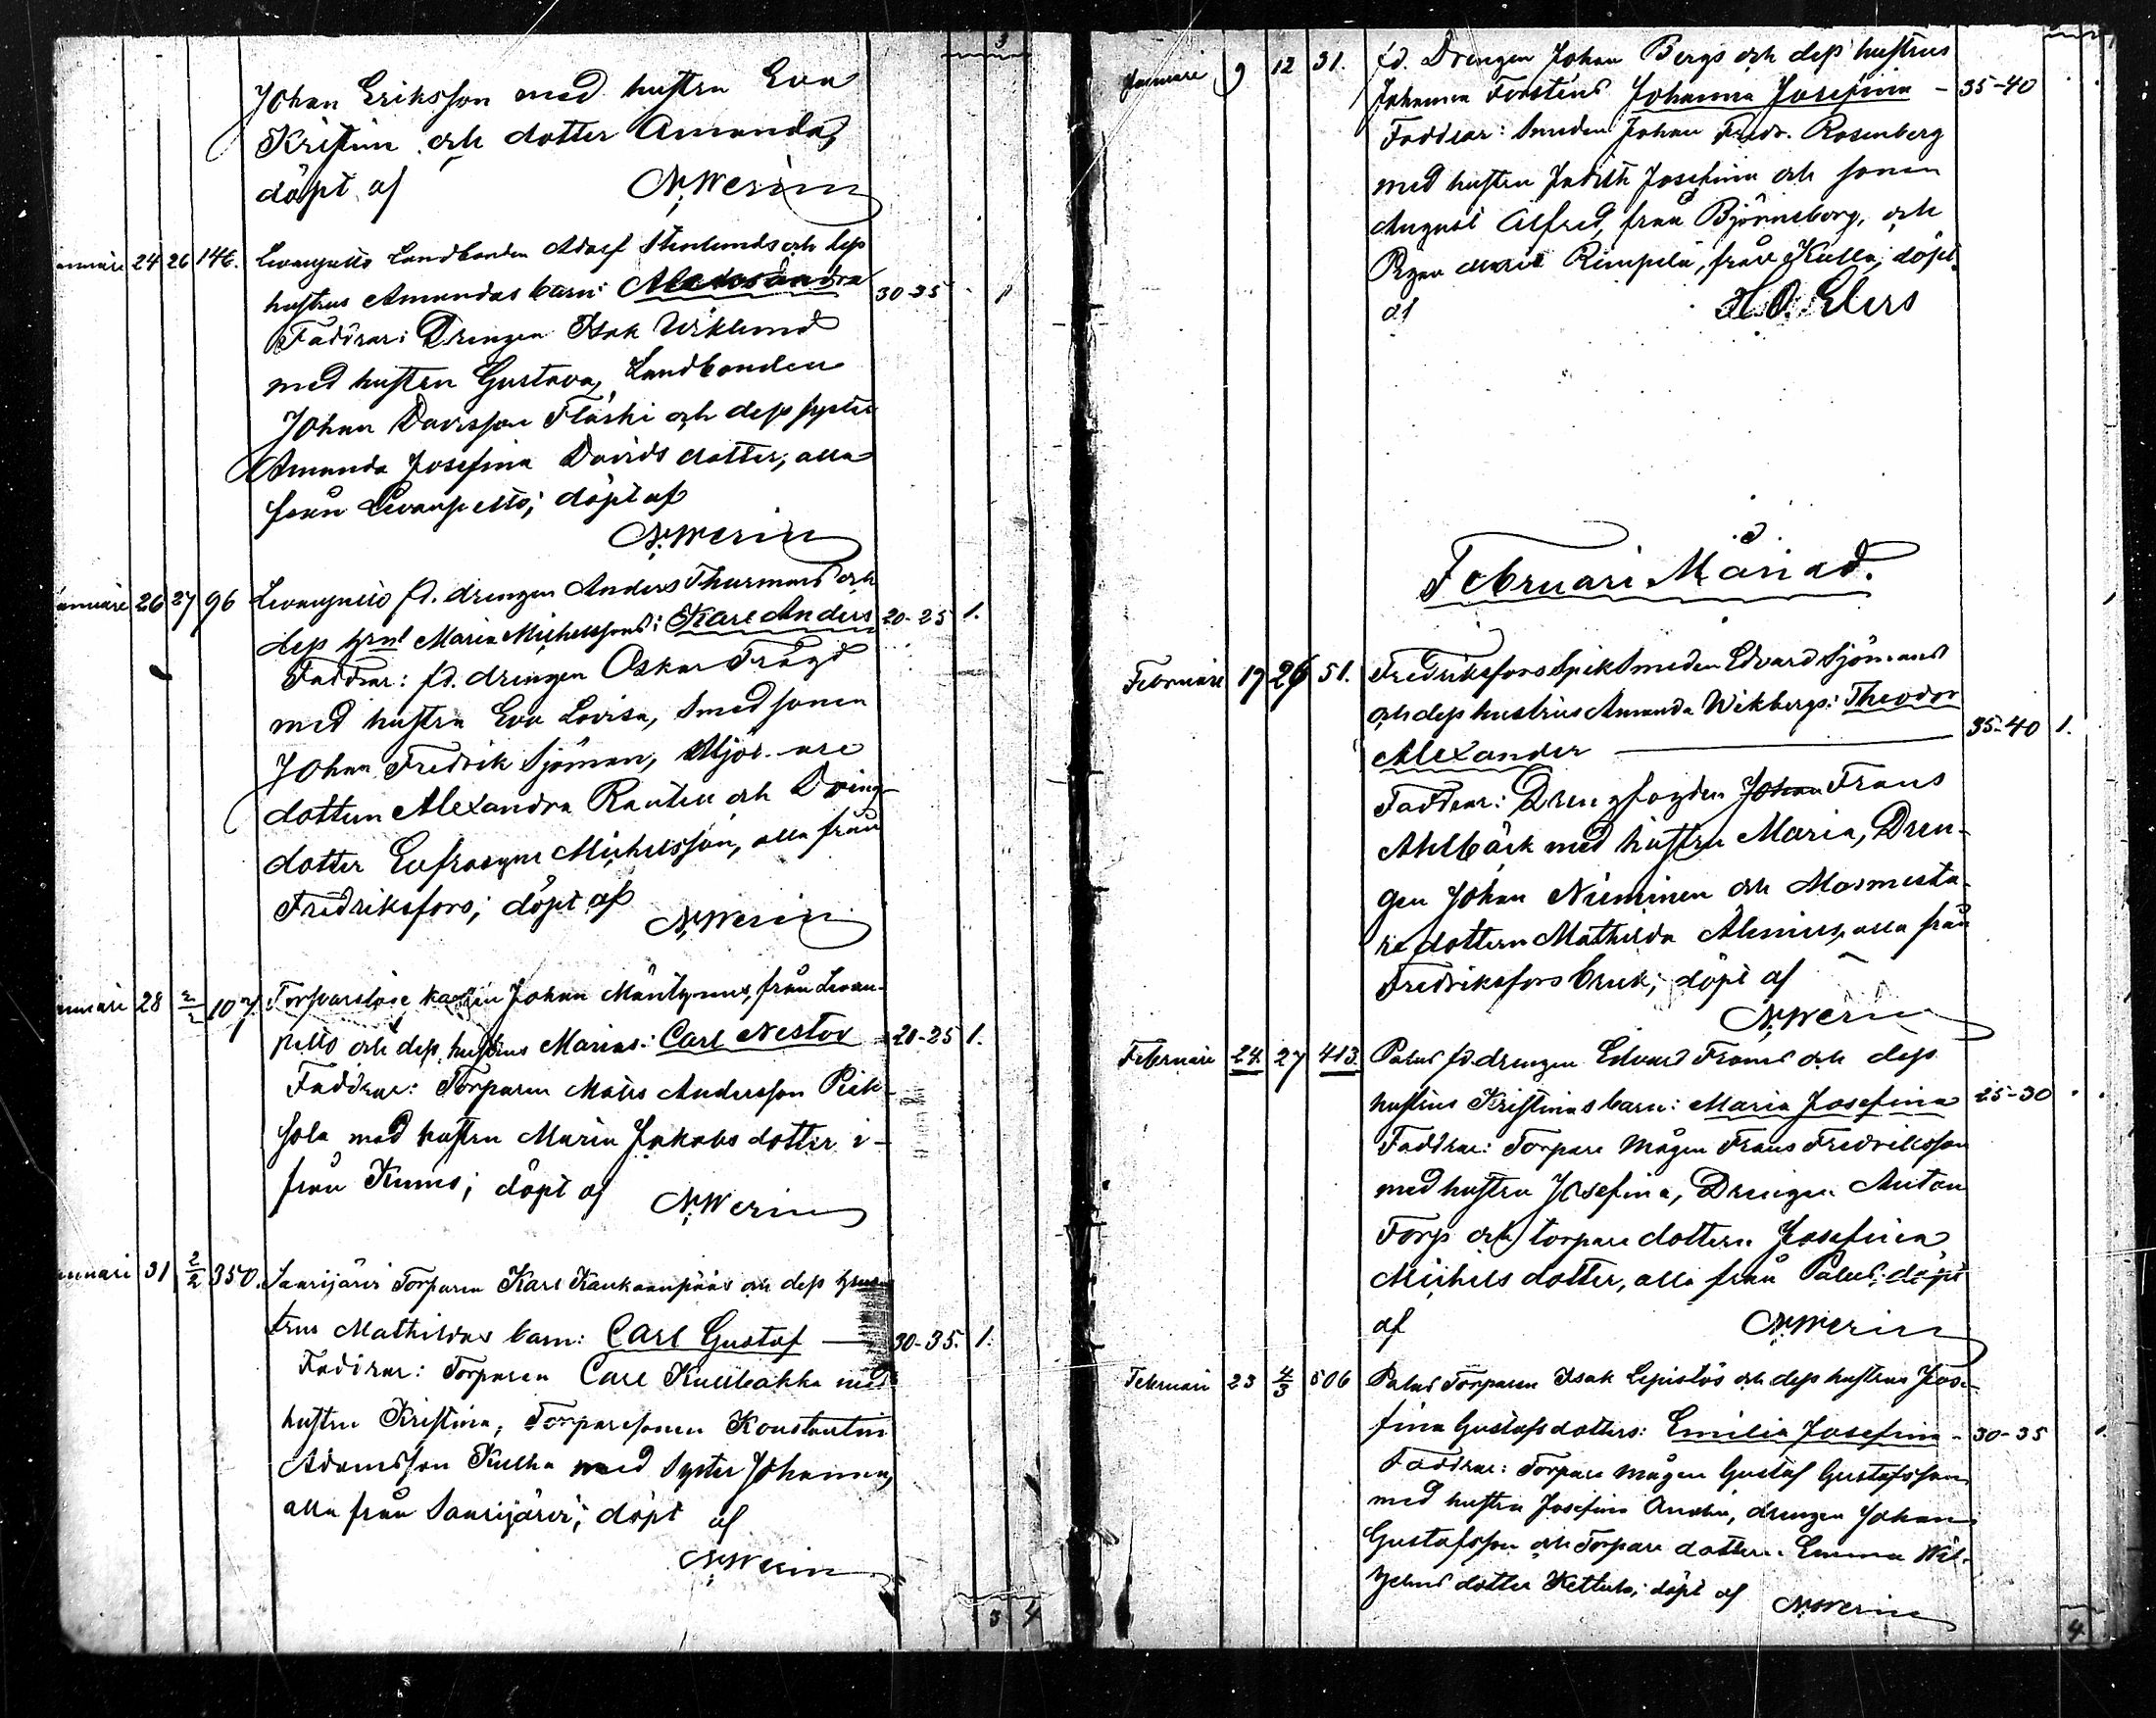 3
Johan Eriksson med hustru Eva
Kristin och dotter Amanda,
döpt af N. Merin
Januari 24 26 146. Levanpelto Landbonden Adolf Stenlunds och dess
hustrus Amandas barn: Alexandra 30-35 1
Faddrar: Drengen Isak Wiklund
med hustru Gustava, Landbonden
Johan Davidsson Fläski och dess syster
Amanda Josefina Davidsdotter, alla
från Levanpelto; döpt af
N. Merin
Januari 26 27 96 Levanpelto fd. drengen Anders Thurmans och
dess Maria Michelssons: Karl Anders 20-25 1.
Faddrar: fd. drengen Oskar Frägd
med hustru Eva Lovisa, Smedsonen
Johan Fredrik Sjöman, Mjölnare
dottern Alexandra Rauten och Dreng-
dotter Eufrosyne Michelsson, alla från
Fredriksfors; döpt af N. Merin
Januari 28 2/2 107. Torparen Johan Mäntynens, från Levan-
pelto och dess hustrus Marias: Carl Nestor 20-25 1.
Faddrar: Torparen Matts Andersson Piik-
sola med hustru Maria Jakobsdotter i-
från Kumo; döpt af N. Merin
Januari 31 2/2 350. Saarijärvi Torparen Karl Kankaanpääs och dess hus-
trus Mathildas barn: Carl Gustaf 30-35. 1.
Faddrar: Torparen Carl Kullbakka med
hustru Kristina, Torparesonen Konstantin
Adamsson Kulha med Syster Johanna,
alla från Saarijärvi; döpt af
N. Merin
3 4
Januari 9 12 31. fd. Drengen Johan Bergs och dess hustrus
Johanna Forsténs Johanna Josefina - 35-40
Faddrar: Smeden Johan Fredr. Rosenberg
med hustru Judith Josefina och sonen
August Alfred, från Björneborg, och
Maria Rimpelä, från Kulla; döpt
af H. O. Elers
Februari Månad.
Februari 19 26 51. Fredriksfors Spiksmeden Edvard Sjömans
och dess hustrus Amanda Wikbergs: Theodor
Alexander 35-40 1.
Faddrar: Drengfogden Johan Frans
Ahlbäck med hustru Maria, Dren-
gen Johan Nieminen och Masmesta-
re dottern Mathilda Alenius, alla från
Fredriksfors bruk; döpt af
N. Merin
Februari 24 27 413. Palus fd. drengen Edvard Frams och dess
hustrus Kristinas barn: Maria Josefina 25-30
Faddrar: Torpare mågen Frans Fredriksson
med hustru Josefina, Drengen Anton
Torp och torpare dottern Josefina
Michelsdotter, alla från Palus; döpt
af N. Merin
Februari 23 4/3 506 Palus Torparen Isak Lepistös och dess hustrus Jose-
fina Gustafsdotters: Emilia Josefina - 30-35 1.
Faddrar: Torpare mågen Gustaf Gustafsson
med hustru Josefina, drengen Johan
Gustafsson och Torpare dottern Emma Wil-
helmsdotter Kettula; döpt af N. Merin
4